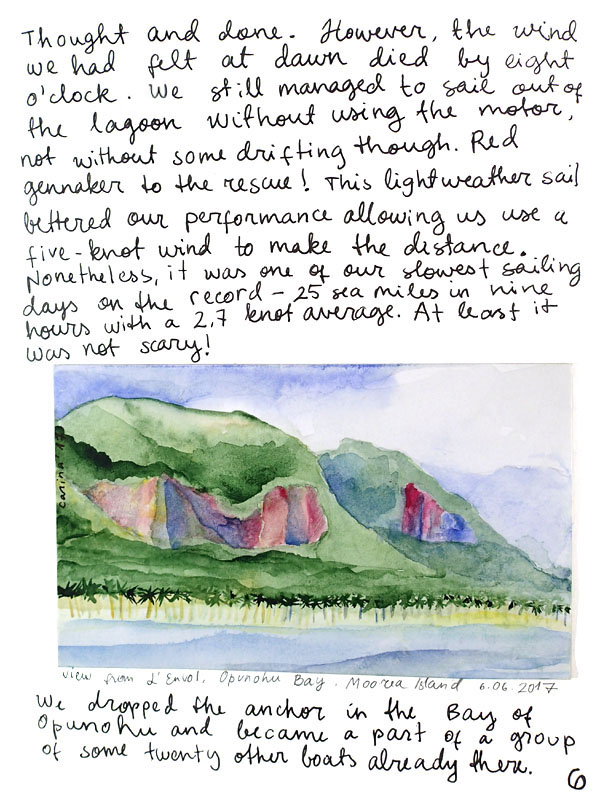 Thought and done. However, the wind
we had felt at dawn died by eight
o'clock. We still managed to sail out of
the lagoon without using the motor,
not without some drifting though. Red
gennaker to the rescue! This lightweather sail
bettered our performance allowing us use a
five-knot wind to make the distance.
Nonetheless, it was one of our slowest sailing
days on the record – 25 sea miles in nine
hours with a 2,7 knot average. At least it
was not scary!
carina
view from L'Envol, Opunohu Bay. Moorea Island 6.06.2017
We dropped the anchor in the Bay of
Opunohu and became a part of a group
of some twenty other boats already there.
6